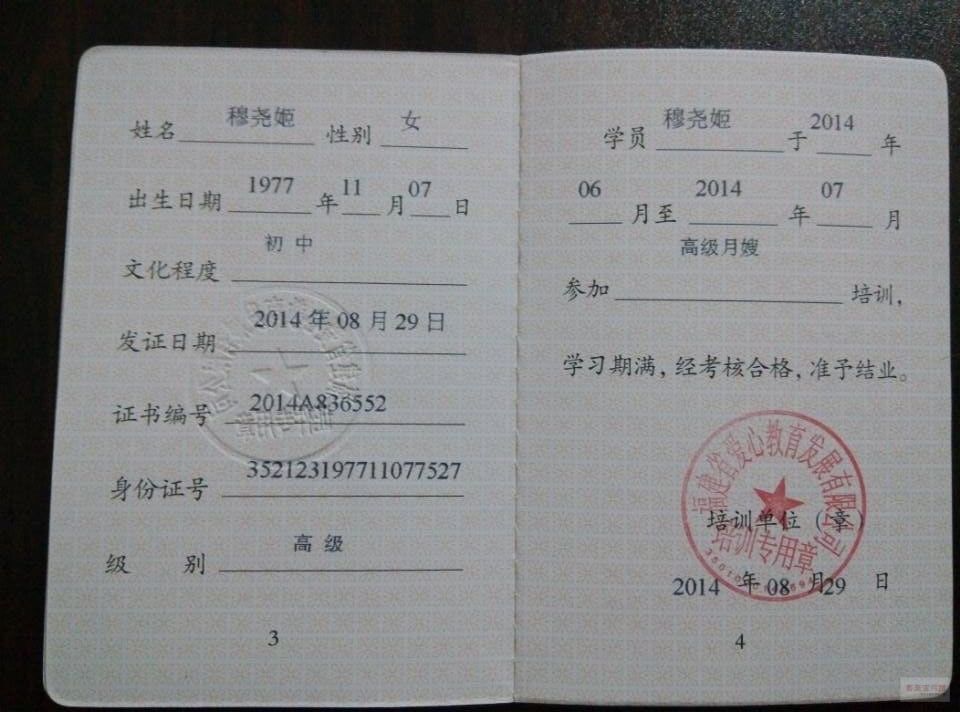 姓名 穆尧姬 性别 女
出生日期 1977 年 11 月 07 日
文化程度 初中
发证日期 2014年08月29日
证书编号 2014A836552
身份证号 352123197711077527
级 别 高级
3
学员 穆尧姬 于 2014 年
06 月至 2014 年 07 月
参加 高级月嫂 培训,
学习期满,经考核合格,准予结业。
福建省爱心教育发展有限公司
培训单位(章)
培训专用章
2014 年 08 月 29 日
4